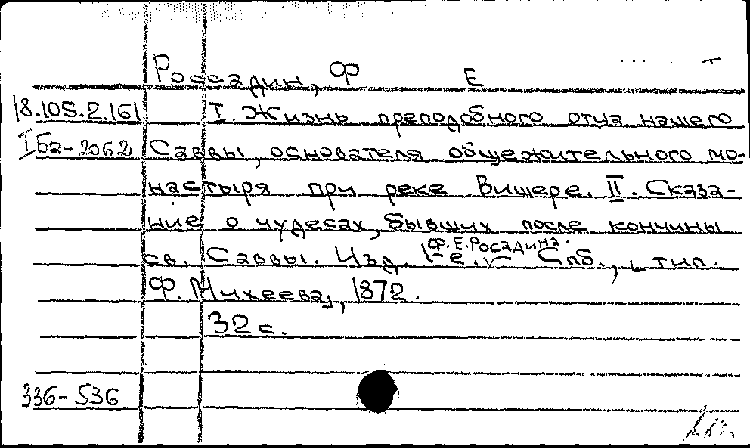 Россадин, Ф Е
18.105.2.161 I. Жизнь преподобного отца нашего
Iба-2062 Саввы, основателя общежительного мо-
настыря при реке Вишере. II. Сказа-
ние о чудесах, бывших после кончины
св. Саввы. Изд. 1-е. Ф.Е.Росадина. Спб., тип.
Ф. Михеева, 1872.
32 с.
336-536